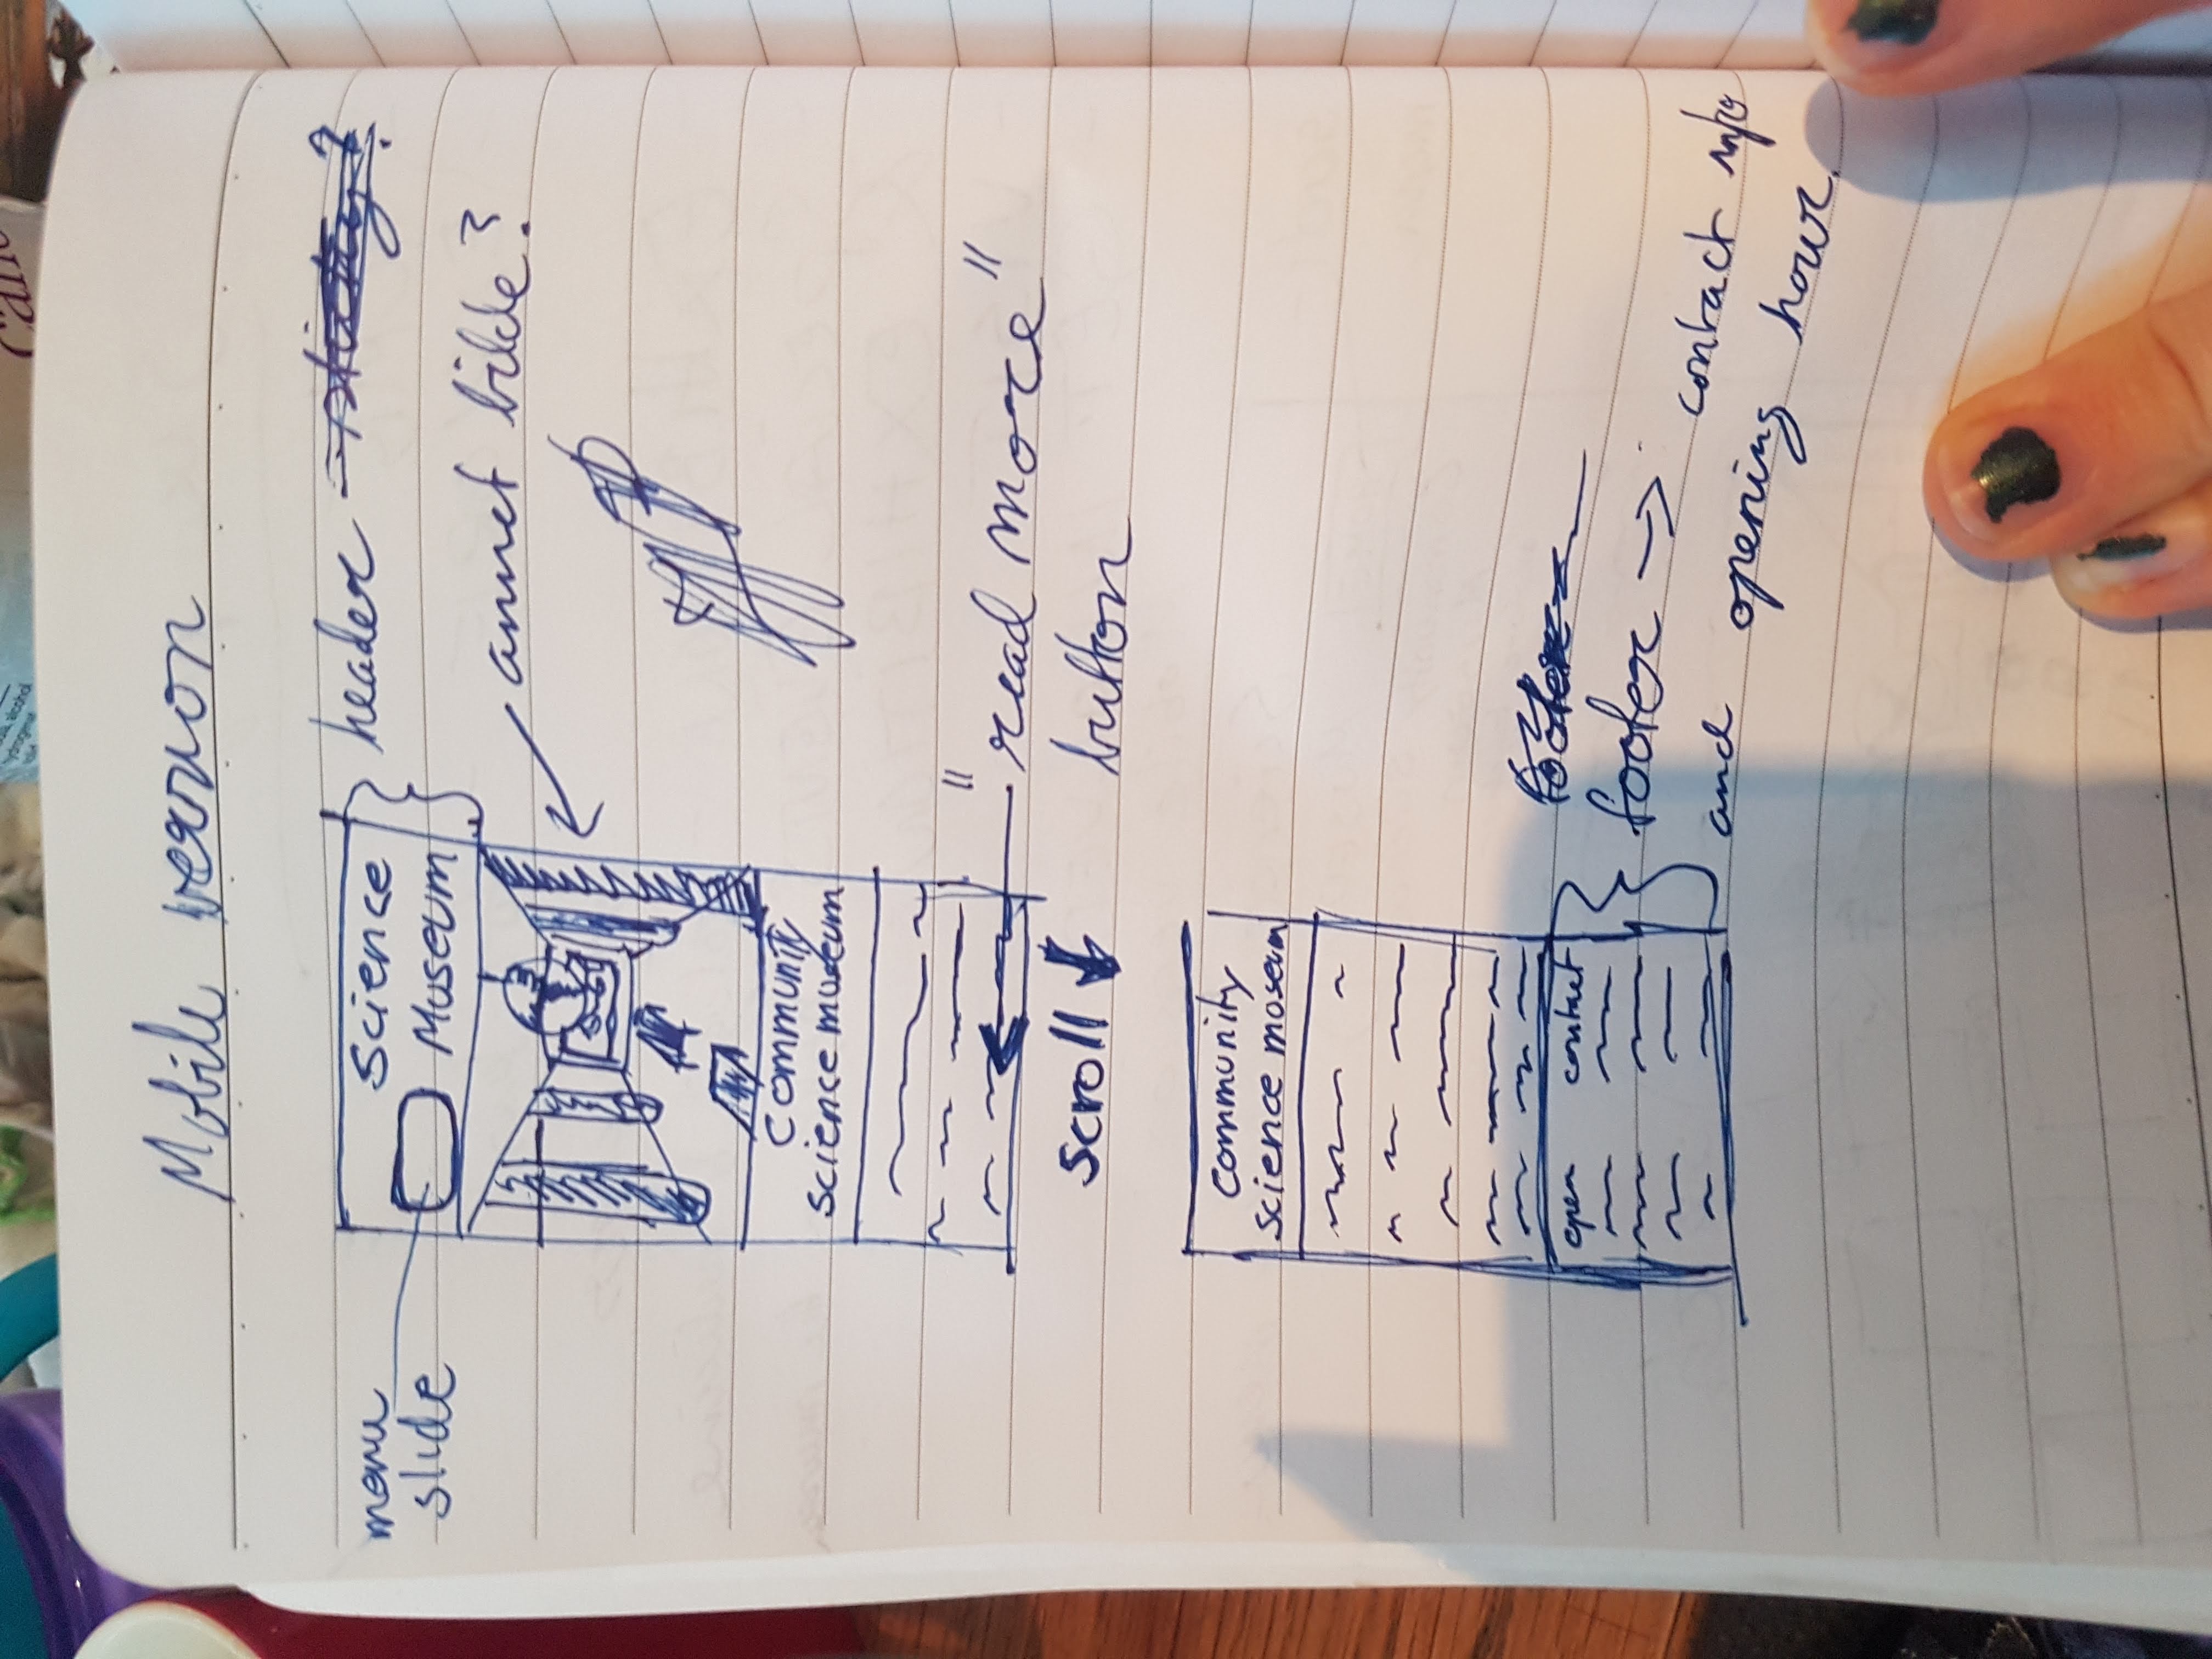 alcohol
Mobile version
menu
slide
Science
Museum
header - sticky?
annet bilde?
Community
science museum
"read more"
button
scroll ↓
community
science moseum
open contact
footer
footer → contact info
and opening hour.